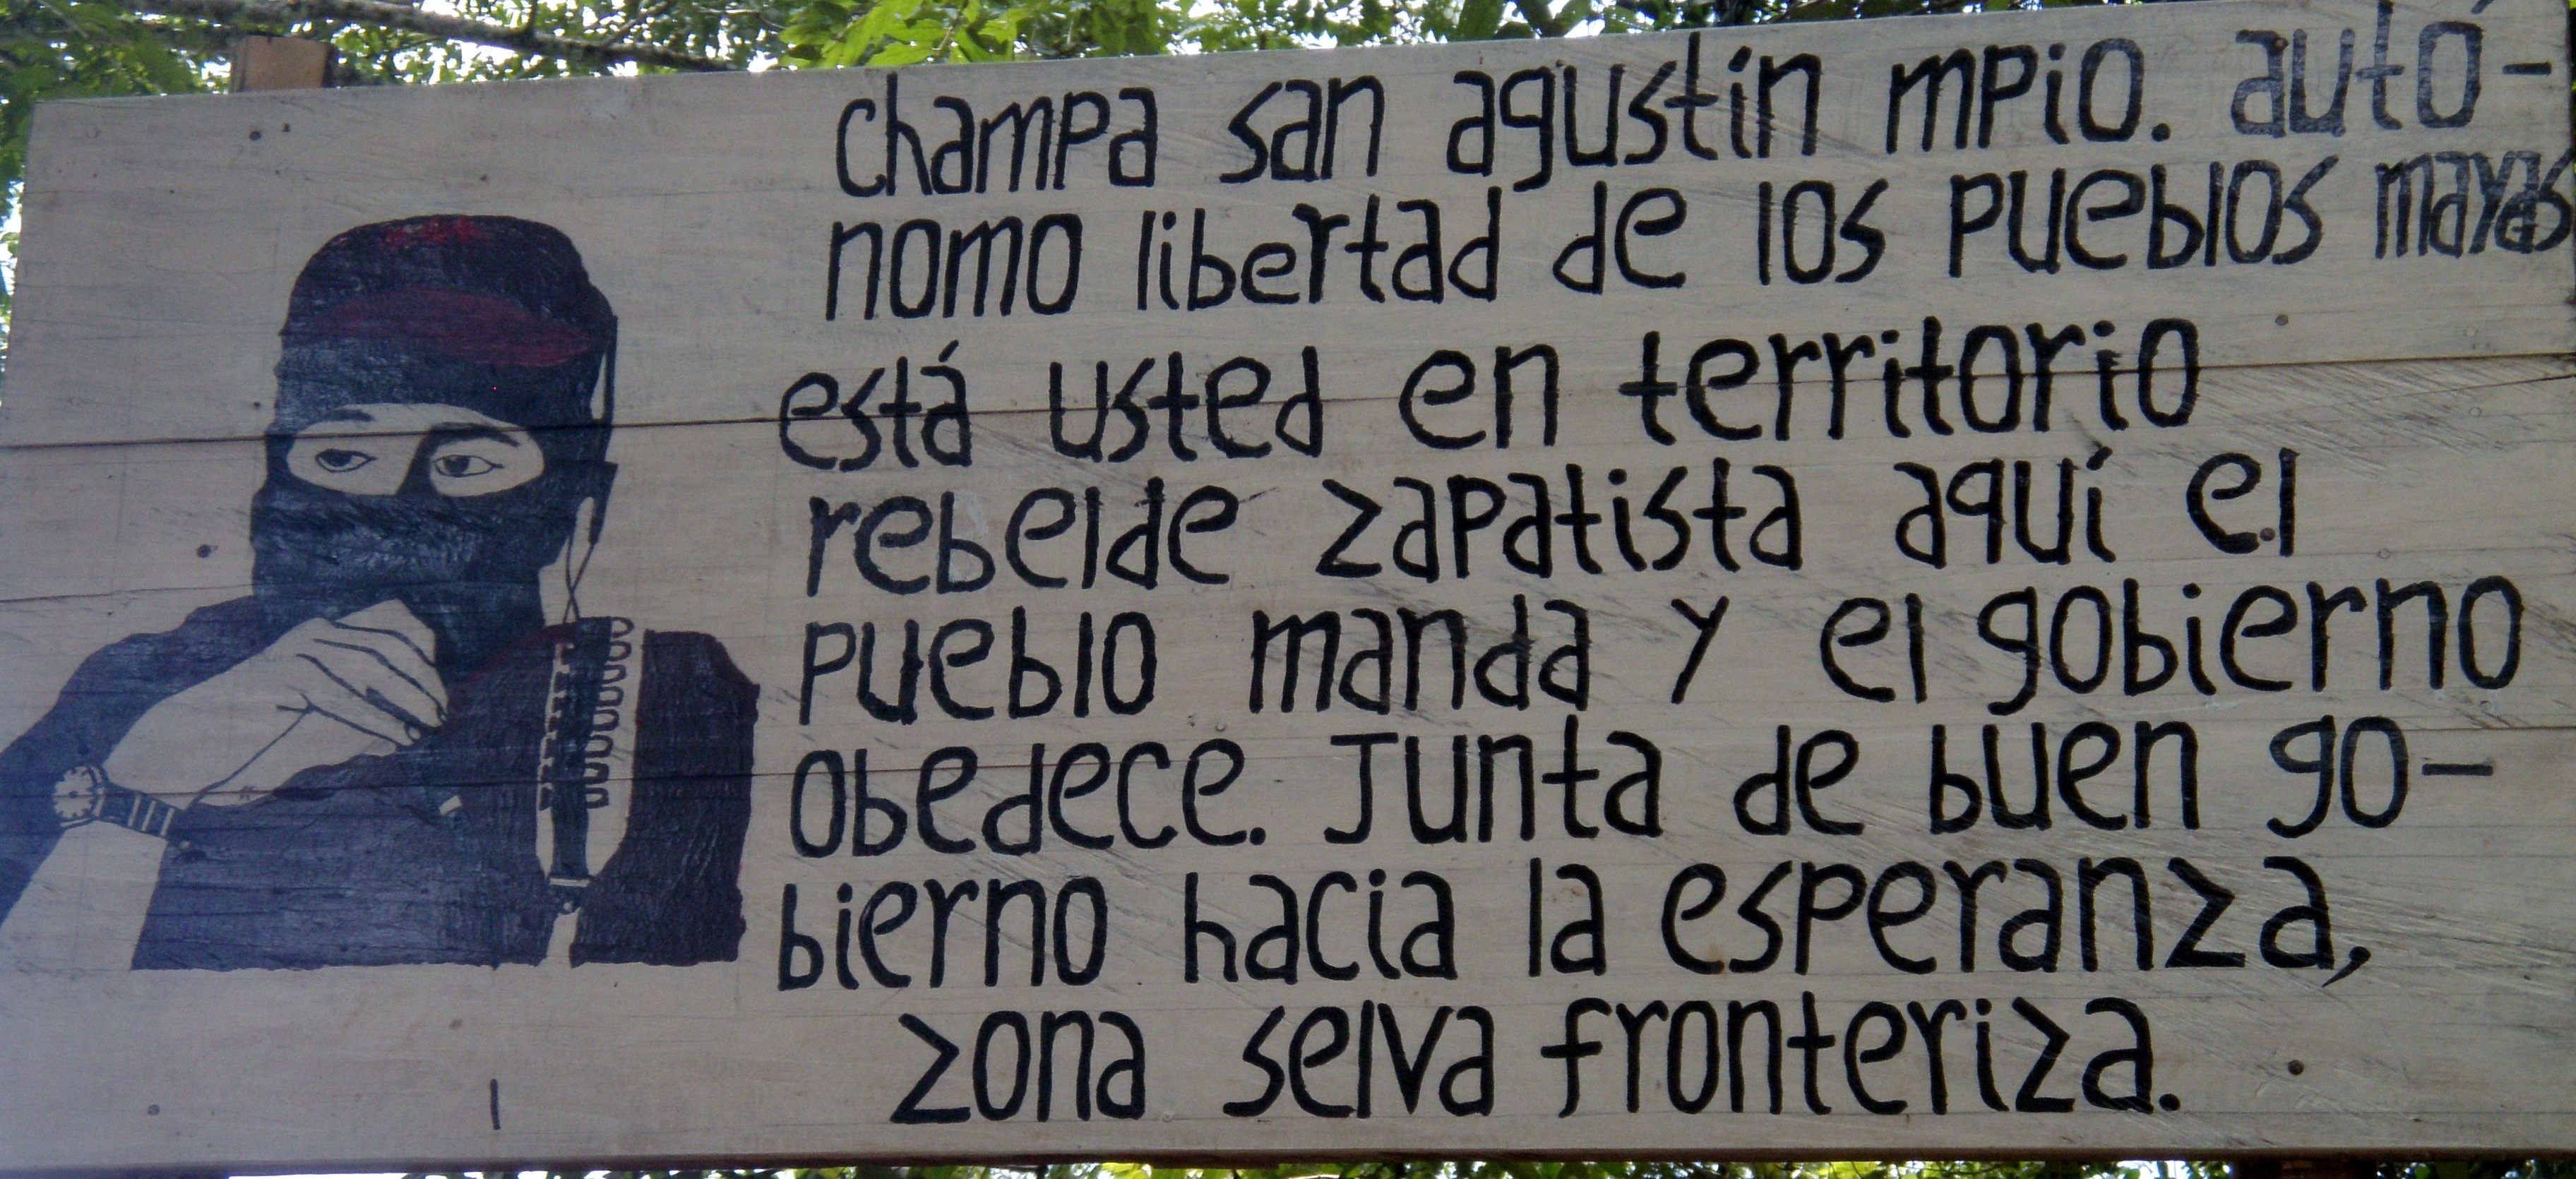 champa san agustín mpio. autó-
nomo libertad de los pueblos mayas
está usted en territorio
rebelde zapatista aquí el
pueblo manda y el gobierno
obedece. Junta de buen go-
bierno hacia la esperanza,
zona selva fronteriza.